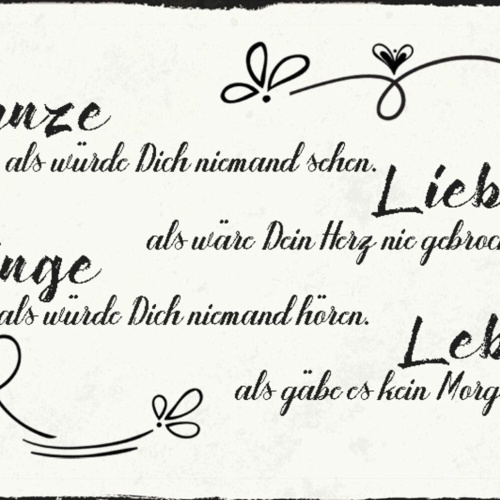 anze
als würde Dich niemand sehen.
Lieb
als wäre Dein Herz nie gebroc
inge
als würde Dich niemand hören.
Leb
als gäbe es kein Morg